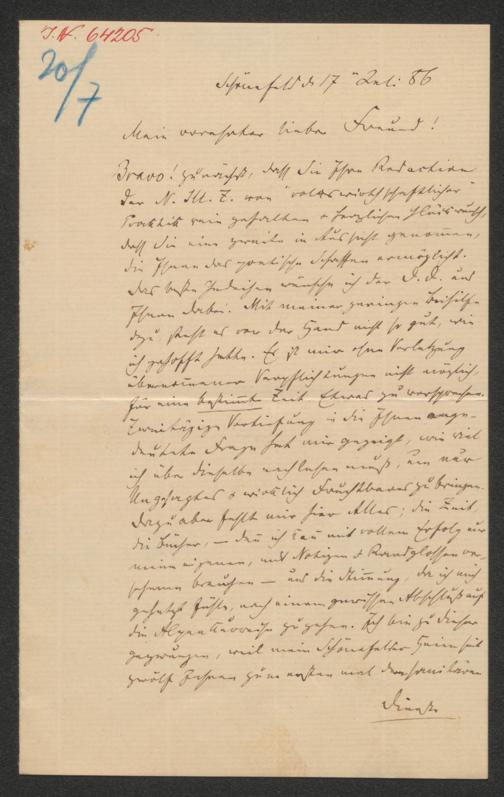 J.N. 64205
20/7
Schönefeld d 17" Juli 86
Mein verehrter lieber Freund!
Bravo! zunächst, daß Sie Ihre Redaction
der N. Ill. Z. von "volkswirthschaftlicher"
Praktik rein gehalten & herzlichen Glückwunsch,
daß Sie eine zweite in Aussicht genommen,
die Ihnen das poetische Schaffen ermöglicht.
Das beste Gedeihen wünsche ich der D. D. und
Ihnen dabei. Mit meiner geringen Beihilfe
dazu steht es vor der Hand nicht so gut, wie
ich gehofft hatte. Es ist mir ohne Verletzung
übernommener Verpflichtungen nicht möglich,
für eine bestimmte Zeit Etwas zu versprechen.
Zweitägige Vertiefung in die Ihnen ange-
deutete Frage hat mir gezeigt, wie viel
ich über dieselbe nachlesen muß, um nur
Ungesagtes & wirklich Fruchtbares zu bringen.
Dazu aber fehlt mir hier Alles; die Zeit,
die Bücher, — denn ich kann mit vollem Erfolg nur
meine eigenen, mit Notizen & Randglossen ver-
sehenen brauchen — und die Stimmung, da ich mich
gehetzt fühle, nach einem gewissen Abschluß auf
die Alpen zu gehen. Ich bin zu dieser
gezwungen, weil mein Schönefelder Heim seit
zwölf Jahren zum ersten mal den sanitären
Dienst